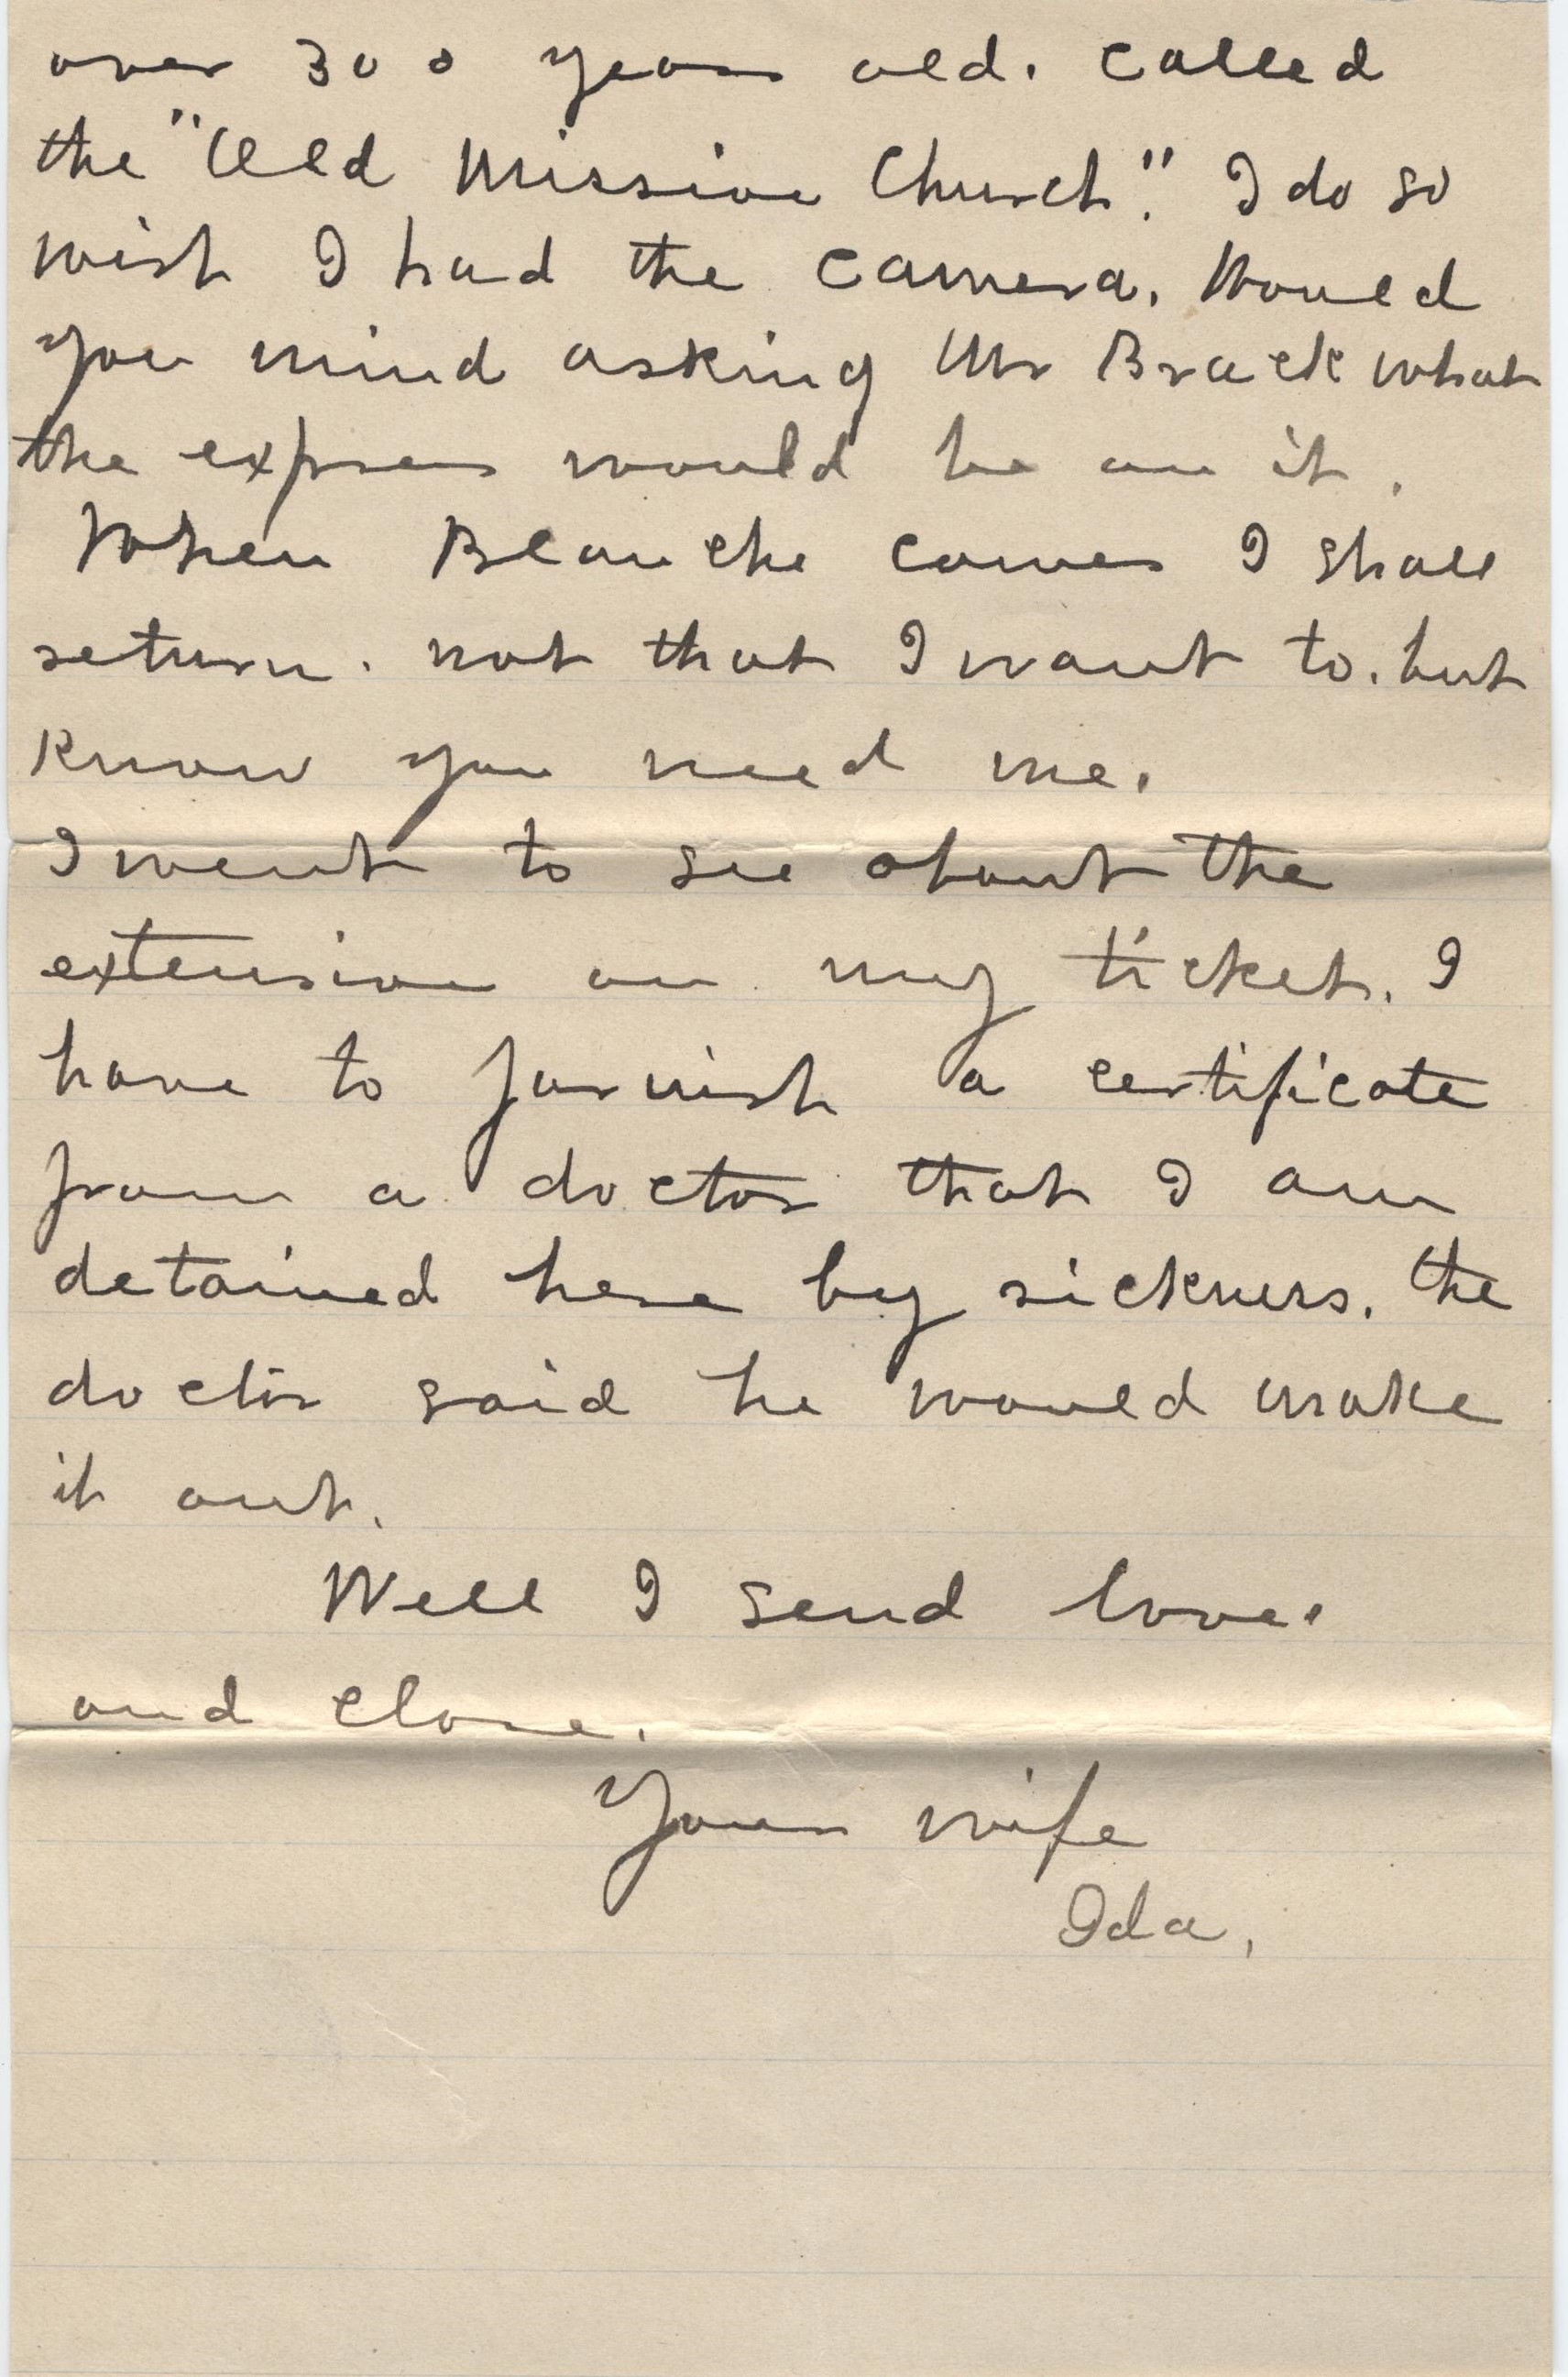 over 300 years old. called
the "Old Mission Church". I do so
wish I had the camera. Would
you mind asking Mr Brack what
the express would be on it.
When Blanche comes I shall
return. not that I want to. but
know you need me.
I went to see about the
extension on my ticket. I
have to furnish a certificate
from a doctor that I am
detained here by sickness. the
doctor said he would make
it out.
Well I send love.
and close.
Your wife
Ida,